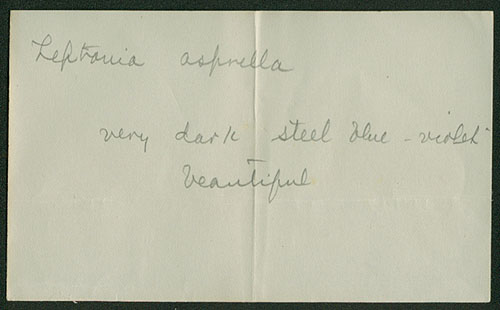 Leptonia asprella
very dark steel blue - violet
beautiful